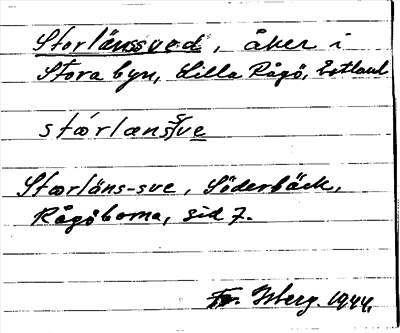 Storlänssved, åker i
Stora byn, Lilla Rågö, Estland
stórlæns/sve
Storläns-sve, Söderbäck,
Rågöborna, sid 7.
Fr. Isberg. 1944.